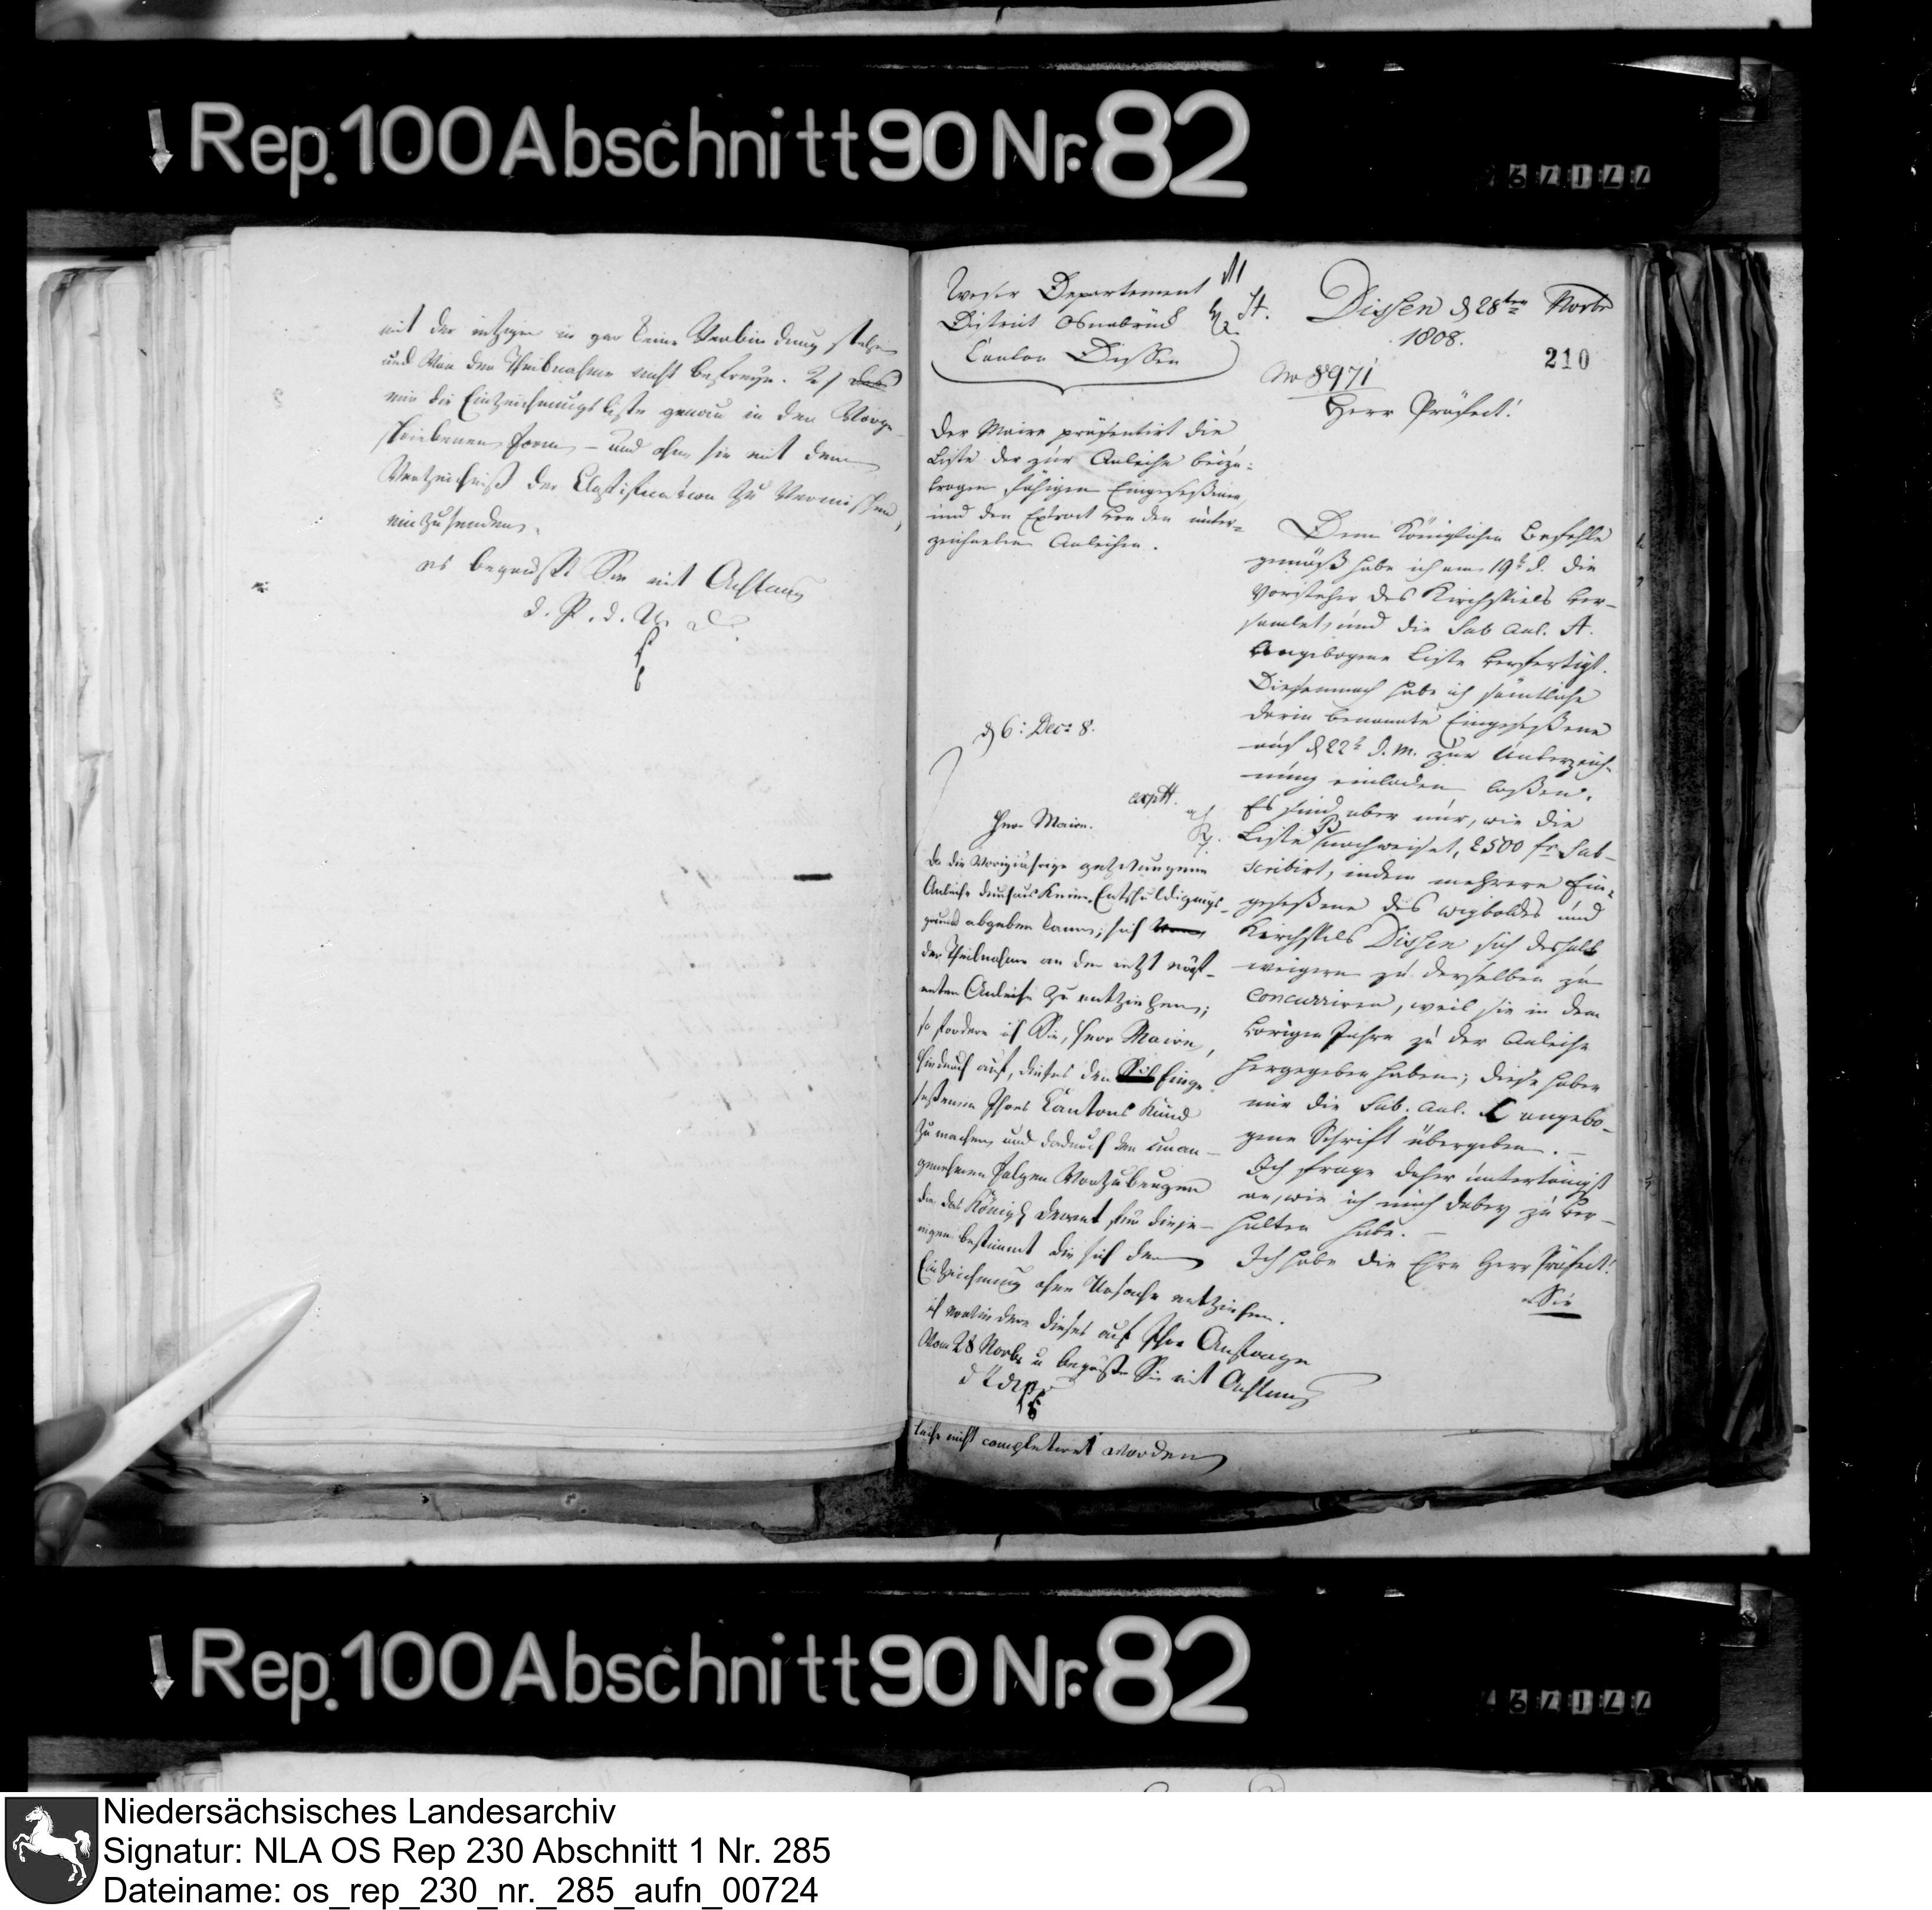 Rep. 100 Abschnitt 90 Nr. 82
mit der jetzigen in gar keine Verbindung stehen
und Von der Theilnahme nicht befreyen. 2)
mir die Einzeichnungsliste genau in der Vorge-
schriebenen Form – und ohne sie mit dem
Verzeichniß der Classification zu Vermischen,
einzusenden.
es begrüßt Sie mit Achtung
d. P. d. W. D.
Weser Departement
District Osnabrück
Canton Dissen
Dissen d 28ten Novbr
1808.
210
No 8971
Herr Präfect!
Der Maire präsentirt die
Liste der zur Anleihe beizu-
tragen fähigen Eingesessenen,
und den Extract von den unter-
zeichneten Anleihen.
Dem Königlichen Befehle
gemäß habe ich am 19t d. die
Vorsteher des Kirchspiels ver-
samlet, und die sub anl. A.
angebogene Liste verfertigt.
Diesemnach habe ich sämtliche
darin benannte Eingesessene
auf d 22t d. m. zur Unterzeich-
nung einladen lassen.
Es sind aber nur, wie die
Liste B nachweiset, 2500 fr sub-
scribirt, indem mehrere Ein-
gesessene des Wigboldes und
Kirchspiels Dissen sich deshalb
weigern zu derselben zu
concurriren, weil sie in dem
vorigen Jahre zu der Anleihe
hergegeben haben; diese haben
mir die sub. anl. C angebo-
gene Schrift übergeben. –
Ich frage daher untertänigst
an, wie ich mich dabey zu ver-
halten habe. –
Ich habe die Ehre Herr Präfect!
Sie
d 6: Dec: 8.
expdt.
Herr Maire.
Da die Vorigjährige gezwungene
Anleihe durchaus keinen Entschuldigungs-
grund abgeben kann, sich
der Theilnahme an der jetzt eröff-
neten Anleihe zu entziehen;
so fordere ich Sie, Herr Maire,
hiedurch auf, dieses den Einge-
sessenen Ihres Cantons kund
zu machen, und dadurch den unan-
genehmen Folgen Vorzubeugen
die das Königl Decret für dieje-
nigen bestimmt die sich der
Einzeichnung ohne Ursache entziehen.
ich erwiedere dieses auf Ihre Anfrage
Vom 28 Novbr u begrüße Sie mit Achtung
leihe nicht completirt worden
Rep. 100 Abschnitt 90 Nr. 82
Niedersächsisches Landesarchiv
Signatur: NLA OS Rep 230 Abschnitt 1 Nr. 285
Dateiname: os_rep_230_nr._285_aufn_00724